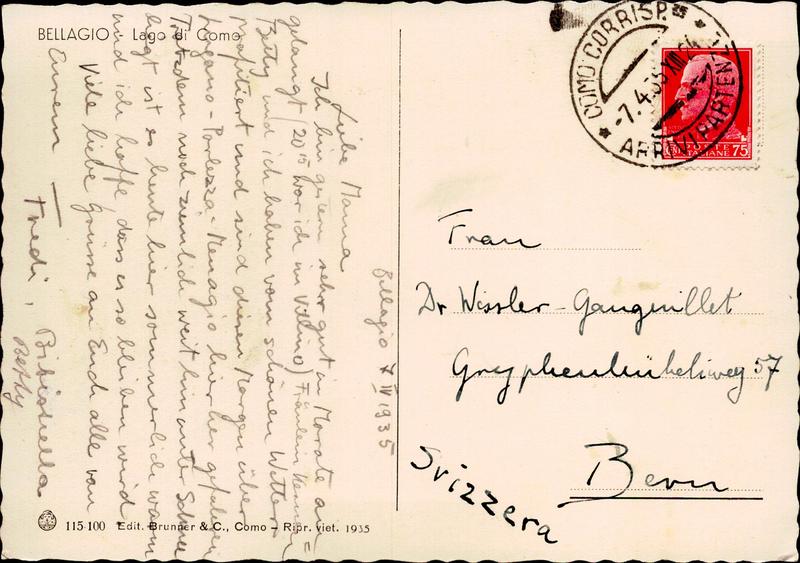 BELLAGIO - Lago di Como
Bellagio 7 IV 1935
Liebe Mama
Ich bin gestern sehr gut in Morcote an-
gelangt (20 war ich in ) Fräulein
Betty und ich haben vom schönen Wetter
profitiert und sind diesen Morgen über
Lugano - Porlezza - Menagio hierher gefahren
Trotzdem noch ziemlich weit hinunter Schnee
liegt ist es heute hier sommerlich warm
und ich hoffe, dass es so bleiben wird
Viele liebe Grüsse an Euch alle von
Eurem Fredi,
Betty
115-100 Edit. Brunner & C., Como - Ripr. viet. 1935
COMO CORRISP.ZE
-7.4.35 XIII 24
ARRIVI PARTENZE
POSTE
ITALIANE 75
Frau
Dr Wissler-Ganguillet
Gryphenhübeliweg 57
Bern
Svizzera